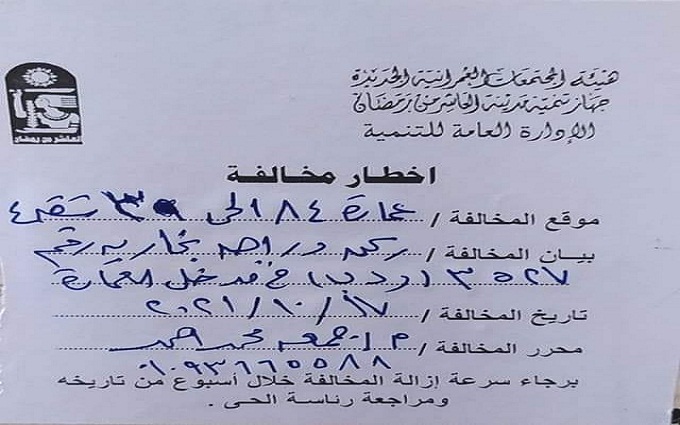 هيئة المجتمعات العمرانية الجديدة
جهاز تنمية مدينة العاشر من رمضان
الإدارة العامة للتنمية
العاشر من رمضان
اخطار مخالفة
موقع المخالفة / عمارة ٨٤ الحى ٣٩ شقة ٤
بيان المخالفة / ركن دراجه بخاريه رقم
٣٥٢٧ (ر د ب) فى مدخل العمارة
تاريخ المخالفة / ١٧ / ١٠ / ٢٠٢١
محرر المخالفة / م / جمعه محمد احمد
برجاء سرعة إزالة المخالفة خلال أسبوع من تاريخه
ومراجعة رئاسة الحى .